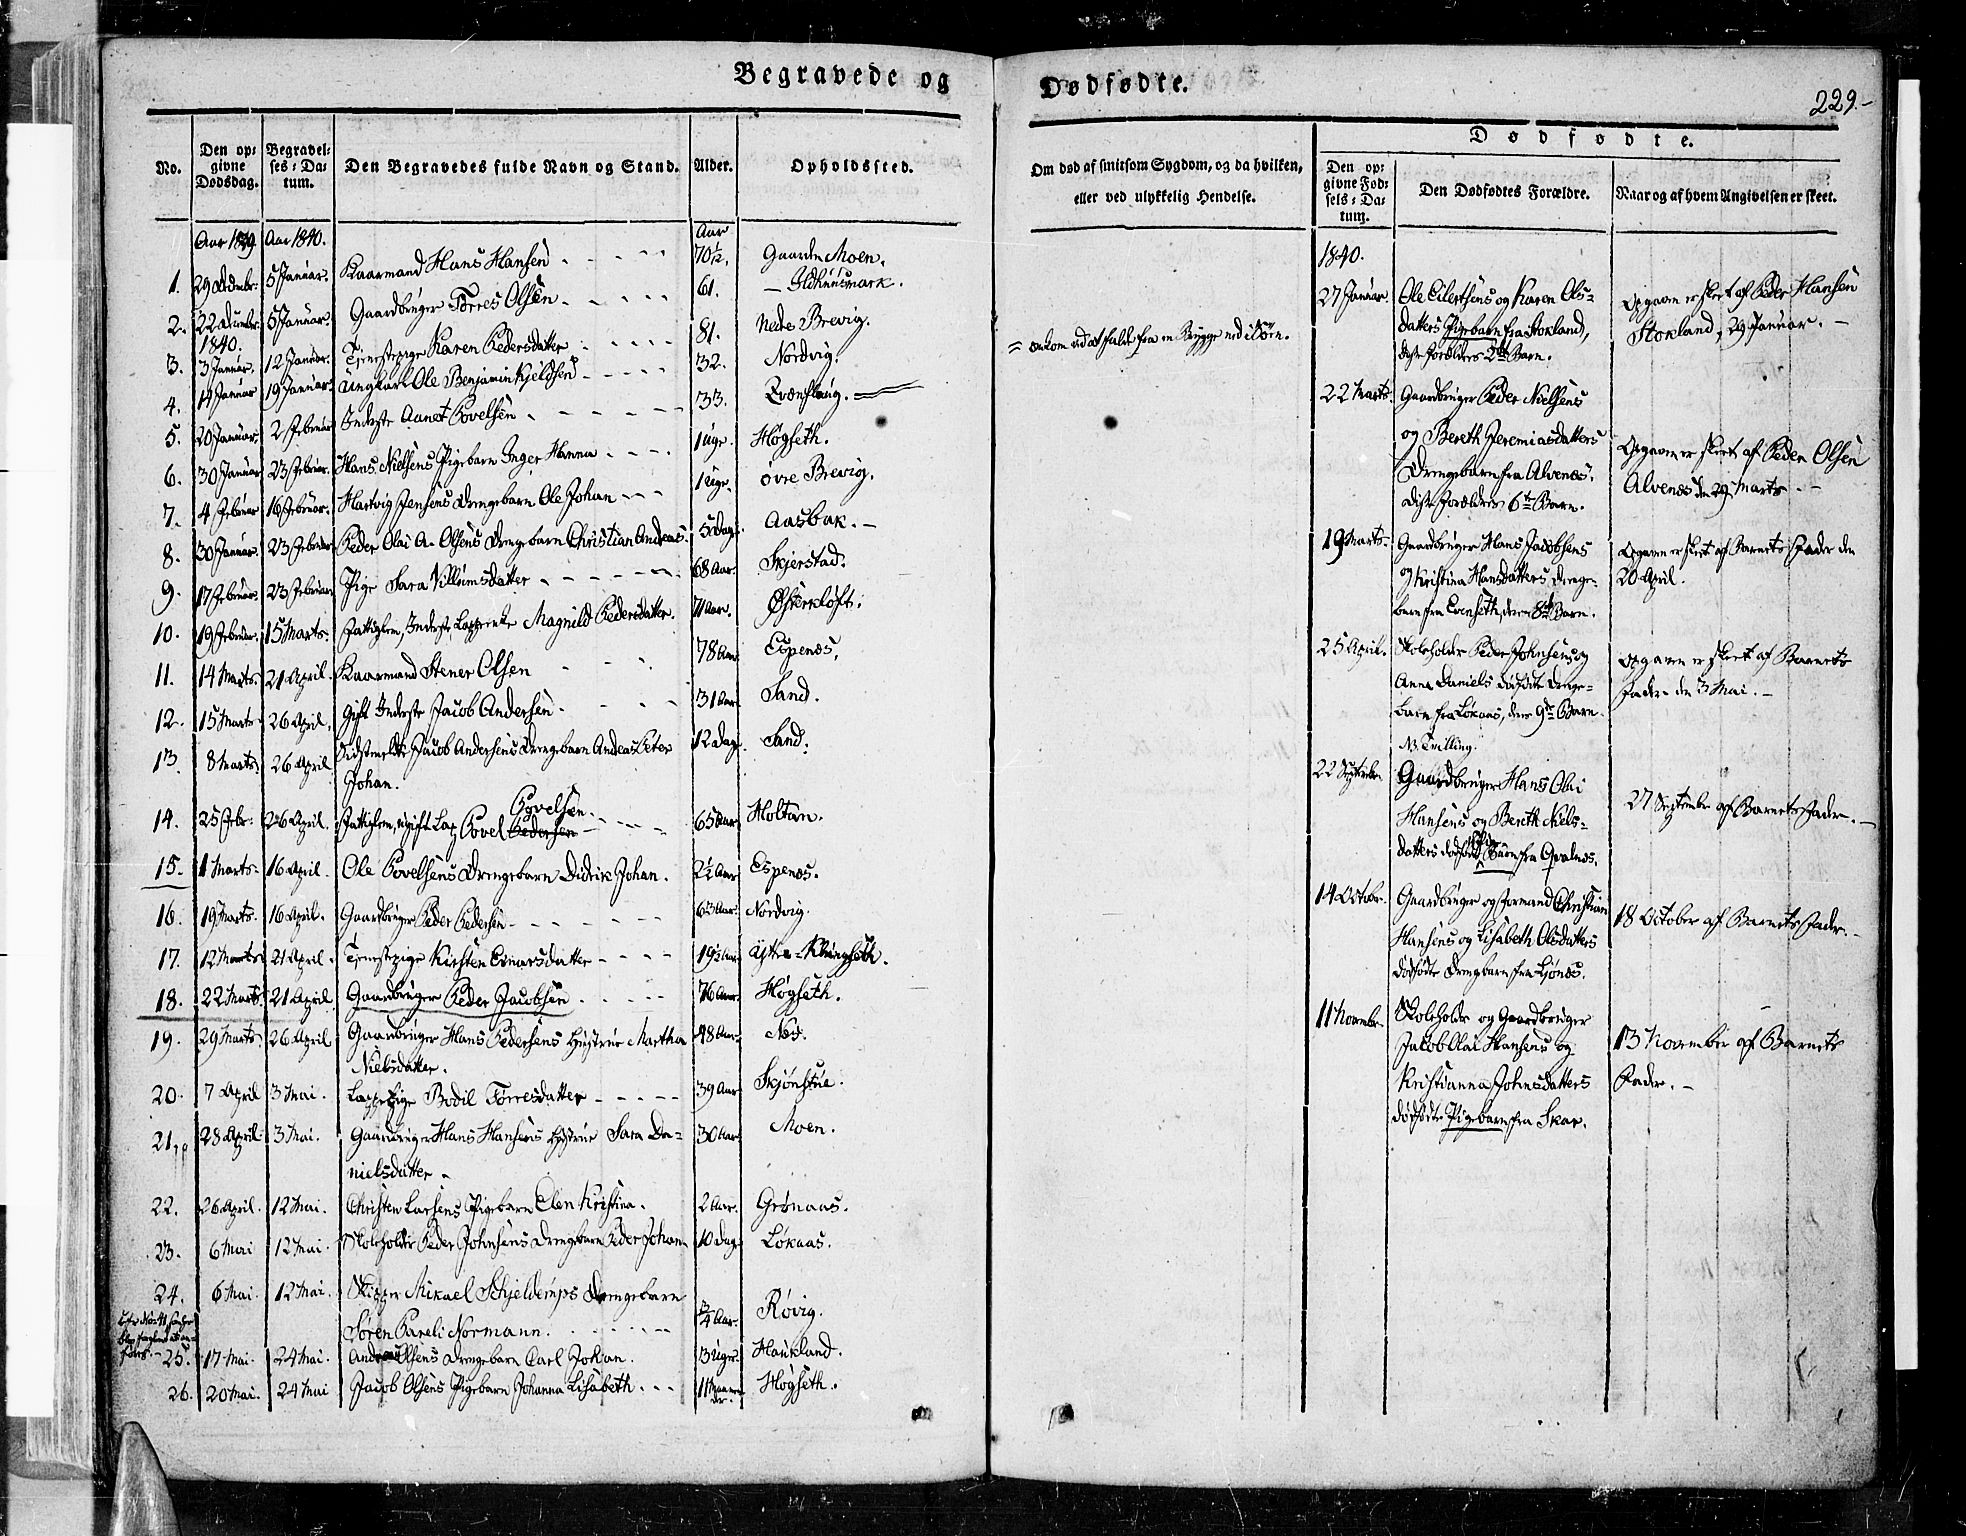 Begravede og Dødfødte.
229.-
No. Den opgivne Dødsdag. Begravelses-Datum. Den Begravedes fulde Navn og Stand. Alder. Opholdssted.
Aar 1839. Aar 1840. Aar
1. 29 Decembr. 5 Januar. Kaarmand Hans Hansen 70 1/12. Gaarden Moen.
2. 22 Decembr. 5 Januar. Gaardbruger Torres Olsen 61. — Ildhuusmark.
1840.
3. 3 Januar. 12 Januar. Tjenestepige Karen Pedersdatter 81. Nedre Brevig.
4. 14 Januar 19 Januar. Ungkarl Ole Benjamin Kjeldsen 32. Nordvig.
5. 20 Januar. 2 Februar Inderste Aanet Povelsen 33. Kvænflaug.
6. 30 Januar 23 Februar. Hans Nielsens Pigebarn Inger Hanna 1 Uge. Høgseth.
7. 4 Februar 16 Februar. Hartvig Jensens Drengebarn Ole Johan 1 Uge. øvre Brevig.
8. 30 Januar. 23 Februar Peder Olai A. Olsens Drengebarn Christian Andreas. 5 Dage. Aasbak.
9. 17 Februar. 23 Februar Pige Sara Villumsdatter 68 Aar. Skjerstad.
10. 19 Februar. 15 Marts. Fattiglem, Inderste, Lappeenke Magnild Pedersdatter. 71 Aar. Østerkløft.
11. 14 Marts. 21 April. Kaarmand Stener Olsen 78 Aar Espenæs.
12. 15 Marts 26 April. Gift Inderste Jacob Andersen 31 Aar Sand.
13. 8 Marts. 26 April Sidstmeldte Jacob Andersens Drengebarn Andreas Peter 12 Dage. Sand.
Johan.
14. 25 Febr. 26 April. Fattiglem, ugift Lap Povel Pedersen Povelsen. 65 Aar. Holtan.
15. 1 Marts. 16 April. Ole Povelsens Drengebarn Didrik Johan. 2½ Aar Espenæs.
16. 19 Marts. 16 April. Gaardbruger Peder Pedersen 63 Aar. Nordvig.
17. 12 Marts 21 April. Tjenestepige Kirsten Einarsdatter 19½ Aar Ystre-Klungseth.
18. 22 Marts. 21 April Gaardbruger Peder Jacobsen 76 Aar. Høgseth.
19. 29 Marts 26 April Gaardbruger Hans Pedersens Hustrue Martha 48 Aar. Næs.
Nielsdatter.
20. 7 April 3 Mai. Lappepige Bodil Torresdatter 39 Aar Skjønstue.
21. 28 April. 3 Mai. Gaardbruger Hans Hansens Hustrue Sara Da- 30 Aar Moen.
nielsdatter
22. 26 April. 12 Mai. Christen Larsens Pigebarn Elen Kristina. 2 Aar. Grønaas.
23. 6 Mai 12 Mai. Skoleholder Peder Johnsens Drengebarn Peder Johan 10 Dage Løkaas.
24. 6 Mai. 12 Mai. Skipper Mikael Schjeldemps Drengebarn ¾ Aar. Røvig.
Søren Pareli Normann.
25. 17 Mai. 24 Mai. Andreas Olsens Drengebarn Carl Johan. 3 Uger. Haukland.
26. 20 Mai. 24 Mai Jacob Olsens Pigebarn Johanna Lisabeth 11 Maaneder. Høgseth.
Om død af smitsom Sygdom, og da hvilken,
eller ved ulykkelig Hendelse.
= omkom ved at falde fra en Brygge ned i Søen.
Dødfødte.
Den opgivne Fødsels-Datum. Den Dødfødtes Forældre. Naar og af hvem Angivelsen er skeet.
1840.
27 Januar Ole Eilertsens og Karen Ols-
datters Pigebarn fra Stokland,
disse Forældres 2det Barn.
Opgaven er skeet af Peder Hansen
Stokland, 29 Januar.
22 Marts. Gaardbruger Peder Nielsens
og Bereth Jeremiasdatters
Drengebarn fra Alvenæs.
Disse Forældres 6te Barn.
Opgaven er skeet af Peder Olsen
Alvenæs den 29 Marts.
19 Marts. Gaardbruger Hans Jacobsens
og Kristina Hansdatters Drenge-
barn fra Evenseth, deres 8de Barn.
Opgaven er skeet af Barnets Fader den
20 April.
25 April. Skoleholder Peder Johnsens og
Anna Daniels dødfødte Drenge-
barn fra Løkaas, deres 9de Barn.
NB. Tvilling.
Opgaven er skeet af Barnets
Fader den 3 Mai.
22 September Gaardbruger Hans Olai
Hansens og Bereth Niels-
datters dødfødte Barn fra Qvalnæs.
27 September af Barnets Fader.
14 Octobr. Gaardbruger og Formand Christian
Hansens og Lisabeth Olsdatters
dødfødte Drengebarn fra Ljønæs.
18 October af Barnets Fader.
11 Novembr. Skoleholder og Gaardbruger
Jakob Olai Hansens og
Kristianna Johnsdatters
dødfødte Pigebarn fra Skar.
13 November af Barnets
Fader.